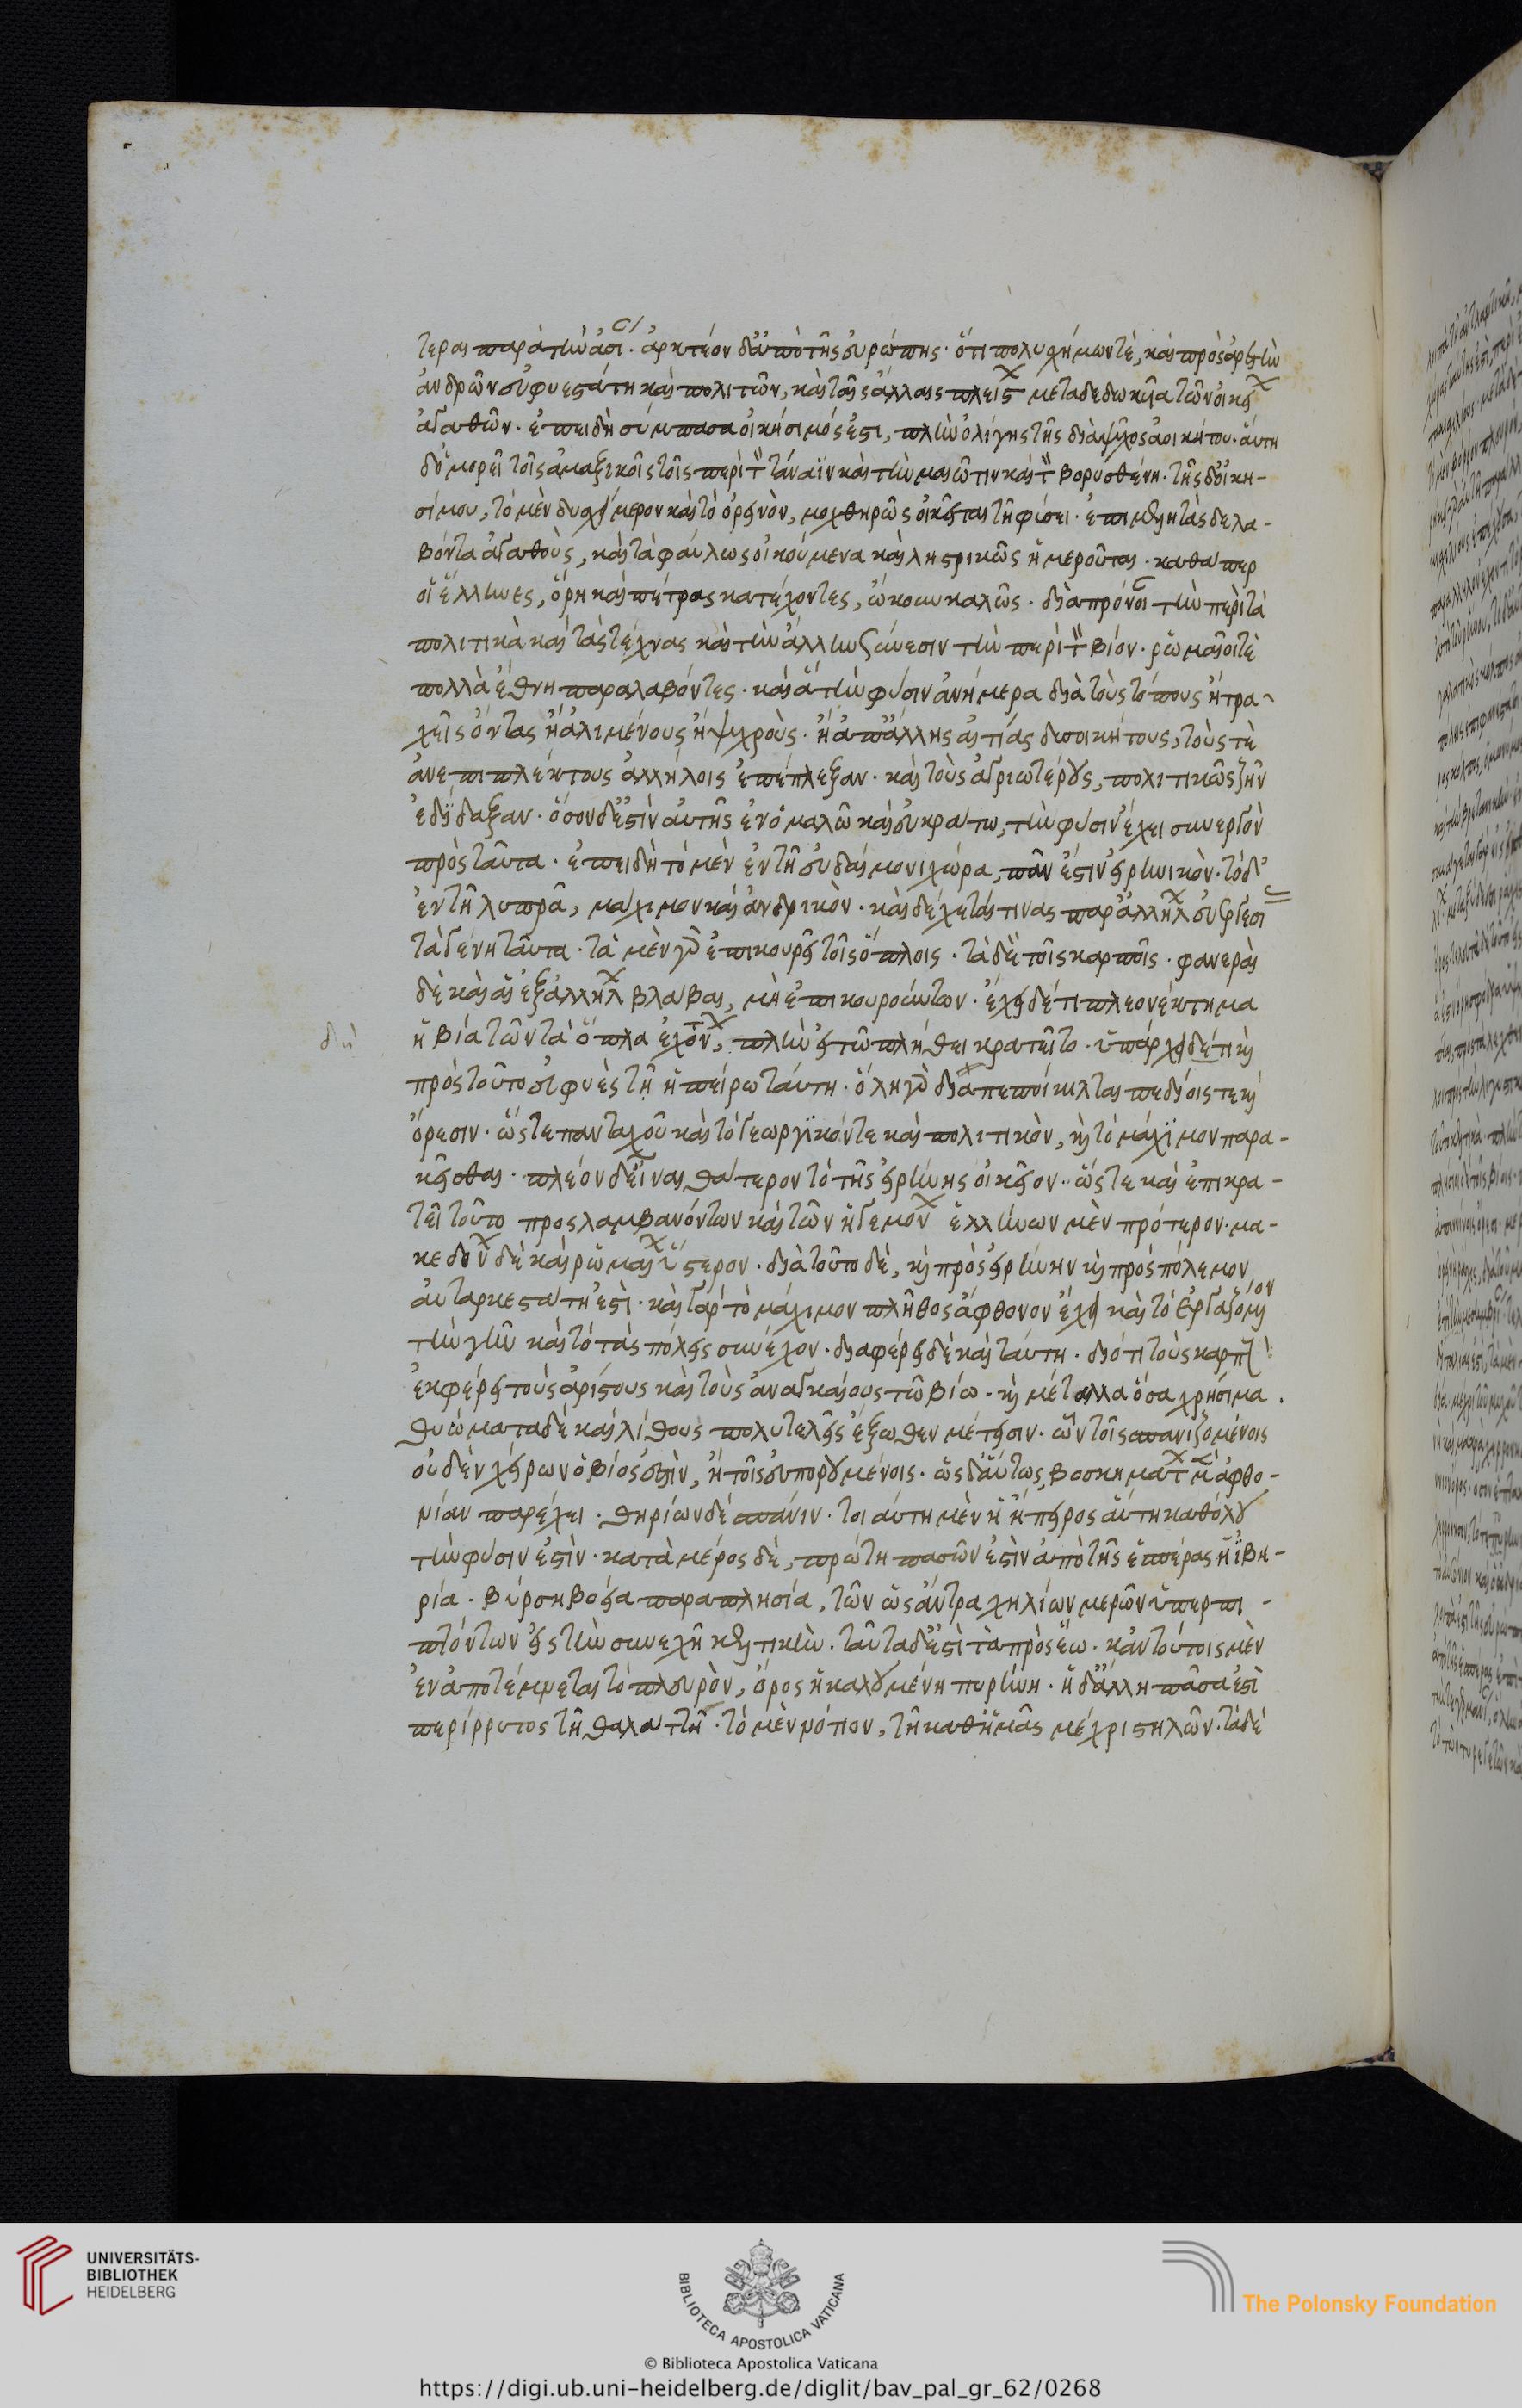 τερας παρὰ τὴν ἀσί. ἀρκτέον δ' ἀπὸ τῆς εὐρώπης. ὅτι πολυσχήμων τὲ, καὶ πρὸς ἀρετὴν
ἀνδρῶν εὐφυεστάτη καὶ πολιτῶν, καὶ ταῖς ἄλλαις πλεῖστ μεταδεδωκυῖα τῶν οἰκεί
ἀγαθῶν. ἐπειδὴ σύμπασα οἰκήσιμός ἐστι, πλὴν ὀλίγης τῆς διὰ ψῦχος ἀοικήτου. αὕτη
δ' ὁμορεῖ τοῖς ἁμαξικοῖς τοῖς περὶ τ τάναϊν καὶ τὴν μαιῶτιν καὶ τ βορυσθένη. τῆς δ' οἰκη-
σίμου, τὸ μὲν δυσχείμερον καὶ τὸ ὀρεινὸν, μοχθηρῶς οἰκεῖται τῇ φύσει. ἐπιμελητὰς δὲ λα-
βόντα ἀγαθοὺς, καὶ τὰ φαύλως οἰκούμενα καὶ λῃστρικῶς ἡμεροῦται. καθάπερ
οἱ ἕλληνες, ὄρη καὶ πέτρας κατέχοντες, ᾤκουν καλῶς. διὰ πρόνοι τὴν περὶ τὰ
πολιτικὰ καὶ τὰς τέχνας καὶ τὴν ἄλλην ξύνεσιν τὴν περὶ τ βίον. ῥωμαῖοί τὲ
πολλὰ ἔθνη παραλαβόντες. καὶ ἃ τὴν φύσιν ἀνήμερα διὰ τοὺς τόπους ἢ τρα-
χεῖς ὄντας ἢ ἀλιμένους ἢ ψυχροὺς. ἢ ἀπ' ἄλλης αἰτίας δυσοικήτους, τούς τὲ
ἀνεπιπλέκτους ἀλλήλοις ἐπέπλεξαν. καὶ τοὺς ἀγριωτέρους, πολιτικῶς ζῆν
ἐδίδαξαν. ὅσον δ' ἐστὶν αὐτῆς ἐν ὁμαλῶ καὶ εὐκράτω, τὴν φύσιν ἔχει συνεργὸν
πρὸς ταῦτα. ἐπειδὴ τὸ μὲν ἐν τῇ εὐδαίμονι χώρα, πᾶν ἐστὶν εἰρηνικὸν. τὸ δ'
ἐν τῇ λυπρᾶ, μάχιμον καὶ ἀνδρικὸν. καὶ δέχεταί τινας παρ' ἀλλήλ εὐεργεσι
τὰ γένη ταῦτα. τὰ μὲν γὰρ ἐπικουρεῖ τοῖς ὅπλοις. τὰ δὲ τοῖς καρποῖς. φανεραὶ
δὲ καὶ αἱ ἐξ ἀλλήλ βλάβαι, μὴ ἐπικουρούντων. ἔχει δέ τι πλεονέκτημα
ἡ βία τῶν τὰ ὅπλα ἐχόντ, πλὴν εἰ τῶ πλήθει κρατεῖτο. ὑπάρχει δέ τι καὶ
πρὸς τοῦτο εὐφυὲς τῇ ἠπείρω ταύτη. ὅλη γὰρ διαπεποίκιλται πεδίοις τε καὶ
ὄρεσιν. ὥστε πανταχοῦ καὶ τὸ γεωργικόν τε καὶ πολιτικὸν, καὶ τὸ μάχιμον παρα-
κεῖσθαι. πλέον δ' εἶναι θάτερον τὸ τῆς εἰρήνης οἰκεῖον. ὥστε καὶ ἐπικρα-
τεῖ τοῦτο προσλαμβανόντων καὶ τῶν ἡγεμόν ἑλλήνων μὲν πρότερον. μα-
κεδόν δὲ καὶ ῥωμαί ὕστερον. διὰ τοῦτο δὲ, καὶ πρὸς εἰρήνην καὶ πρὸς πόλεμον
αὐταρκεστάτη ἐστὶ. καὶ γὰρ τὸ μάχιμον πλῆθος ἄφθονον ἔχει καὶ τὸ ἐργαζόμενον
τὴν γῆν καὶ τὸ τὰς πόλεις συνέχον. διαφέρει δὲ καὶ ταύτη. διότι τοὺς καρπ
ἐκφέρει τοὺς ἀρίστους καὶ τοὺς ἀναγκαίους τῶ βίω. καὶ μέταλλα ὅσα χρήσιμα.
θυώματα δὲ καὶ λίθους πολυτελεῖς ἔξωθεν μέτεισιν. ὧν τοῖς σπανιζομένοις
οὐδὲν χείρων ὁ βίος ἐστὶν, ἢ τοῖς εὐπορουμένοις. ὡς δ' αὕτως βοσκημάτ μὲν ἀφθο-
νίαν παρέχει. θηρίων δὲ σπάνιν. τοιαύτη μὲν ἡ ἤπειρος αὕτη καθόλου
τὴν φύσιν ἐστὶν. κατὰ μέρος δὲ, πρώτη πασῶν ἐστὶν ἀπὸ τῆς ἑσπέρας ἡ ἰβη-
ρία. βύρση βοεία παραπλησία, τῶν ὡς ἂν τραχηλίων μερῶν ὑπερπι-
πτόντων εἰς τὴν συνεχῆ κελτικὴν. ταῦτα δ' ἐστὶ τὰ πρὸς ἕω. κἀν τούτοις μὲν
ἐναποτέμνεται τὸ πλευρὸν, ὄρος ἡ καλουμένη πυρήνη. ἡ δ' ἄλλη πᾶσα ἐστὶ
περίρρυτος τῇ θαλάττη. τὸ μὲν νότιον, τῇ καθ' ἡμᾶς μέχρι στηλῶν. τὰ δὲ
UNIVERSITÄTS-
BIBLIOTHEK
HEIDELBERG
BIBLIOTECA APOSTOLICA VATICANA
© Biblioteca Apostolica Vaticana
The Polonsky Foundation
https://digi.ub.uni-heidelberg.de/diglit/bav_pal_gr_62/0268